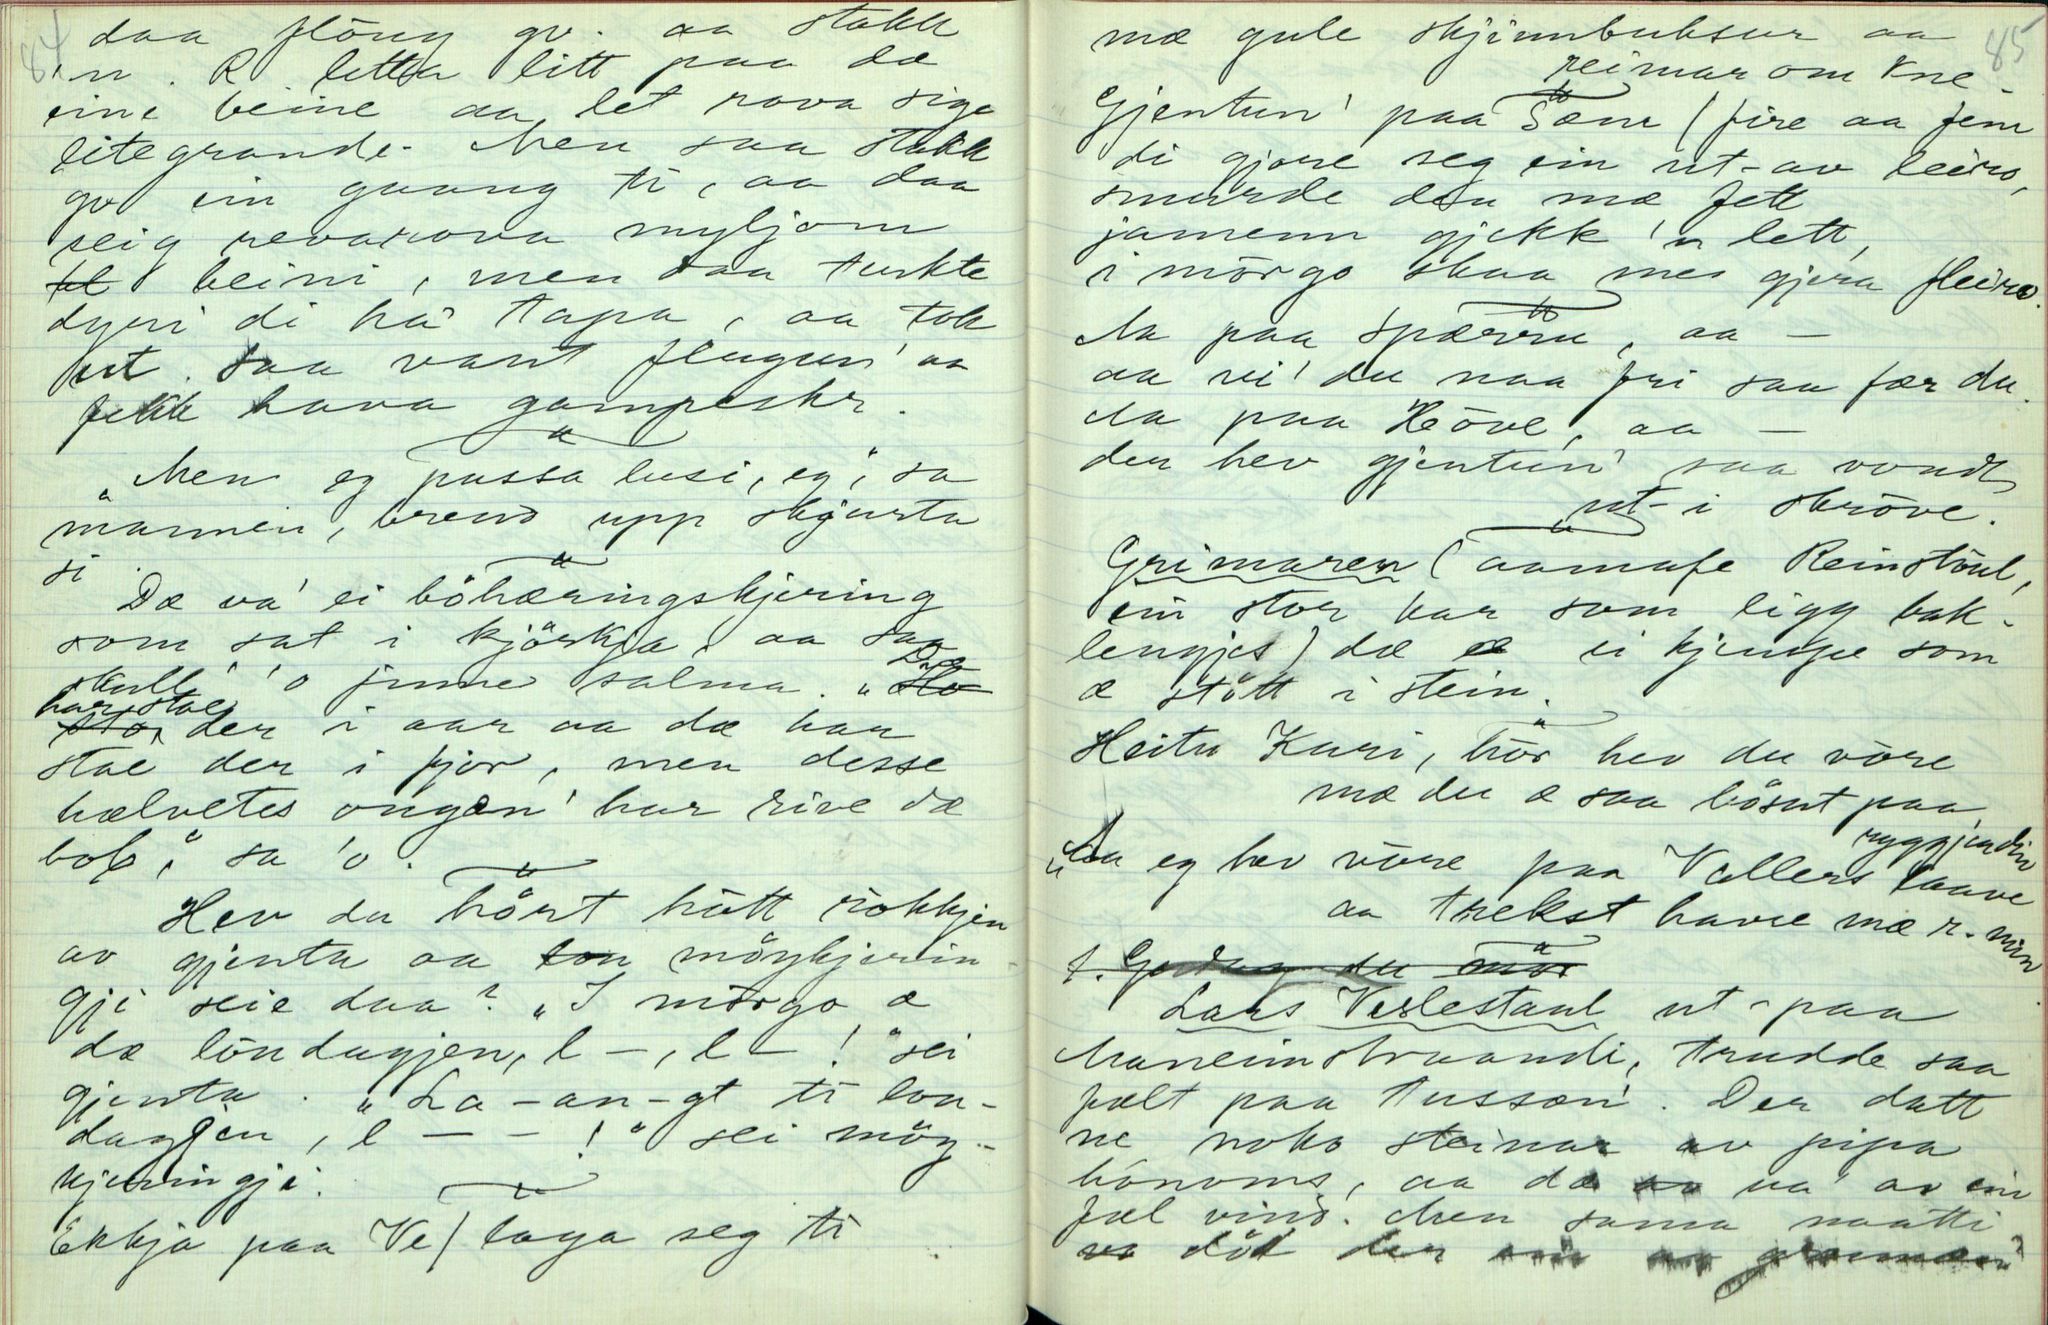 84
daa flöug gv. aa stakk
'n. R letta litt paa dæ
eine beine aa let rova siga
litegrande. Men saa stakk
gv ein gaang ti, aa daa
seig revarova myljom
beini, men daa turkte
dyri di ha' tapa, aa tok
ut. Saa vart flugun' aa
fekk hava gampeskr.
"
„Men eg passa lusi, eg", sa
mannen, brend upp skjurta
si.
"
Dæ va' ei böhæringskjering
som sat i kjörkja, aa saa
skull' 'o finne salma. „Dæ
har stae der i aar aa dæ har
stae der i fjor, men desse
hælvetes ongan' har rive dæ
bol," sa 'o.
"
Hev du hört hött rokkjen
av gjenta aa möykjerin-
gji seie daa? „I mörgo æ
dæ löndagjen, l –, l – !" sei
gjenta. „La-an-gt ti lon-
dagjen, l – – !" sei möy-
kjeringji.
"
Ekkja paa Ve/ laga seg ti
85
mæ gule skjinnbuksur aa
reimar om kne.
"
Gjentun' paa Sæm (fire aa fem
di gjore seg ein ut-av leiro,
smurde den mæ fett
jamenn gjekk 'n lett,
i mörgo skaa me gjera fleire.
"
Aa paa Spærru, aa –
aa vi' du naa fri saa fær du.
Aa paa Höve, aa –
der hev gjentun' saa vondt
ut-i skröve.
"
Grimaren (aamafe Reinstöul,
ein stor kar som ligg bak-
lengjes) dæ æ ei kjempe som
æ stött i stein.
"
Heitu Kari, hör hev du vöre
mæ du æ saa bösut paa
ryggjen din
„Aa eg hev vöre paa Vallers laave
aa trekst havre mæ r. min
"
Lars Veslestaul ut-paa
Maneimstraandi, trudde saa
fælt paa tussan'. Der datt
ne noko steinar av pipa
hönoms, aa dæ va' av ein
fæl vind. Men sama naatti
döi der